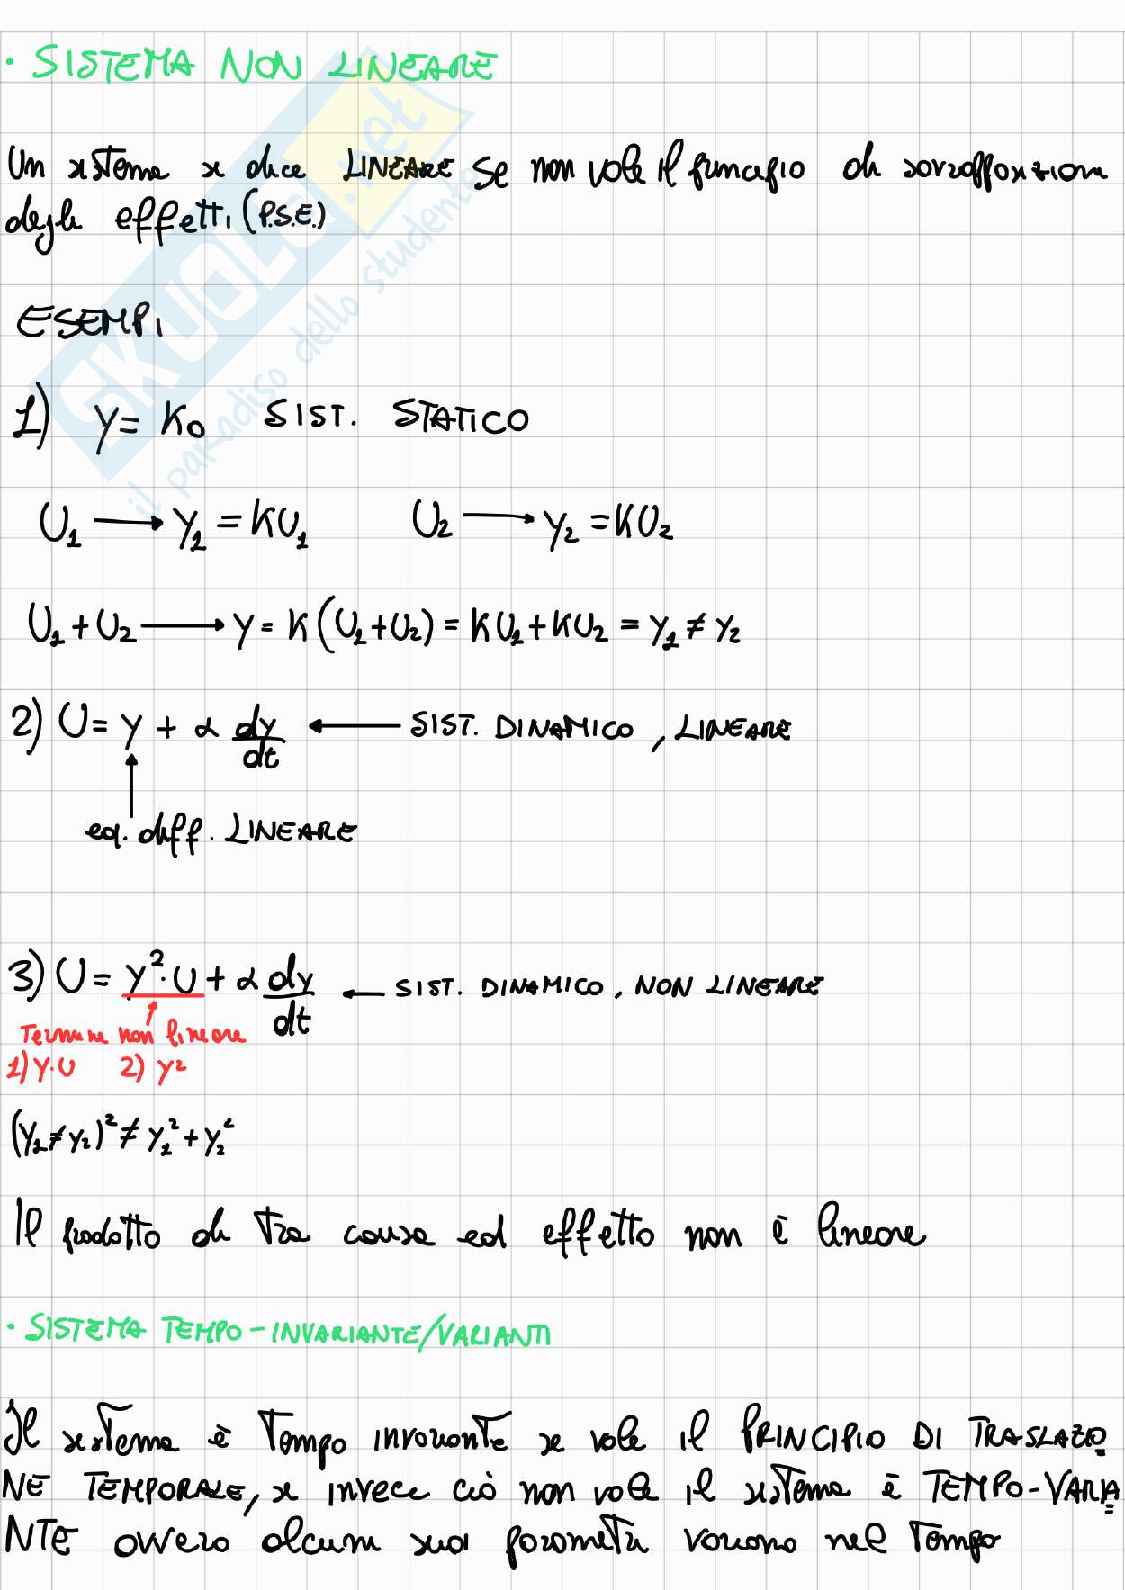 · SISTEMA NON LINEARE
Un sistema si dice LINEARE se non vale il principio di sovrapposizione
degli effetti (P.S.E.)
ESEMPI
1) y = K₀ SIST. STATICO
U₁ → y₁ = KU₁ U₂ → y₂ = KU₂
U₁ + U₂ → y = K(U₁+U₂) = KU₁ + KU₂ = y₁ ≠ y₂
2) U = y + α dy/dt ← SIST. DINAMICO, LINEARE
eq. diff. LINEARE
3) U = y²·U + α dy/dt ← SIST. DINAMICO, NON LINEARE
Termine non lineare
1) y·U 2) y²
(y₁ ≠ y₂)² ≠ y₁² + y₂²
Il prodotto di tra causa ed effetto non è lineare
· SISTEMA TEMPO-INVARIANTE/VARIANTI
Il sistema è Tempo invariante se vale il PRINCIPIO DI TRASLAZIO
NE TEMPORALE, se invece ciò non vale il sistema è TEMPO-VARIA
NTE ovvero alcuni suoi parametri variano nel Tempo
SKUOLA.net
il paradiso dello studente